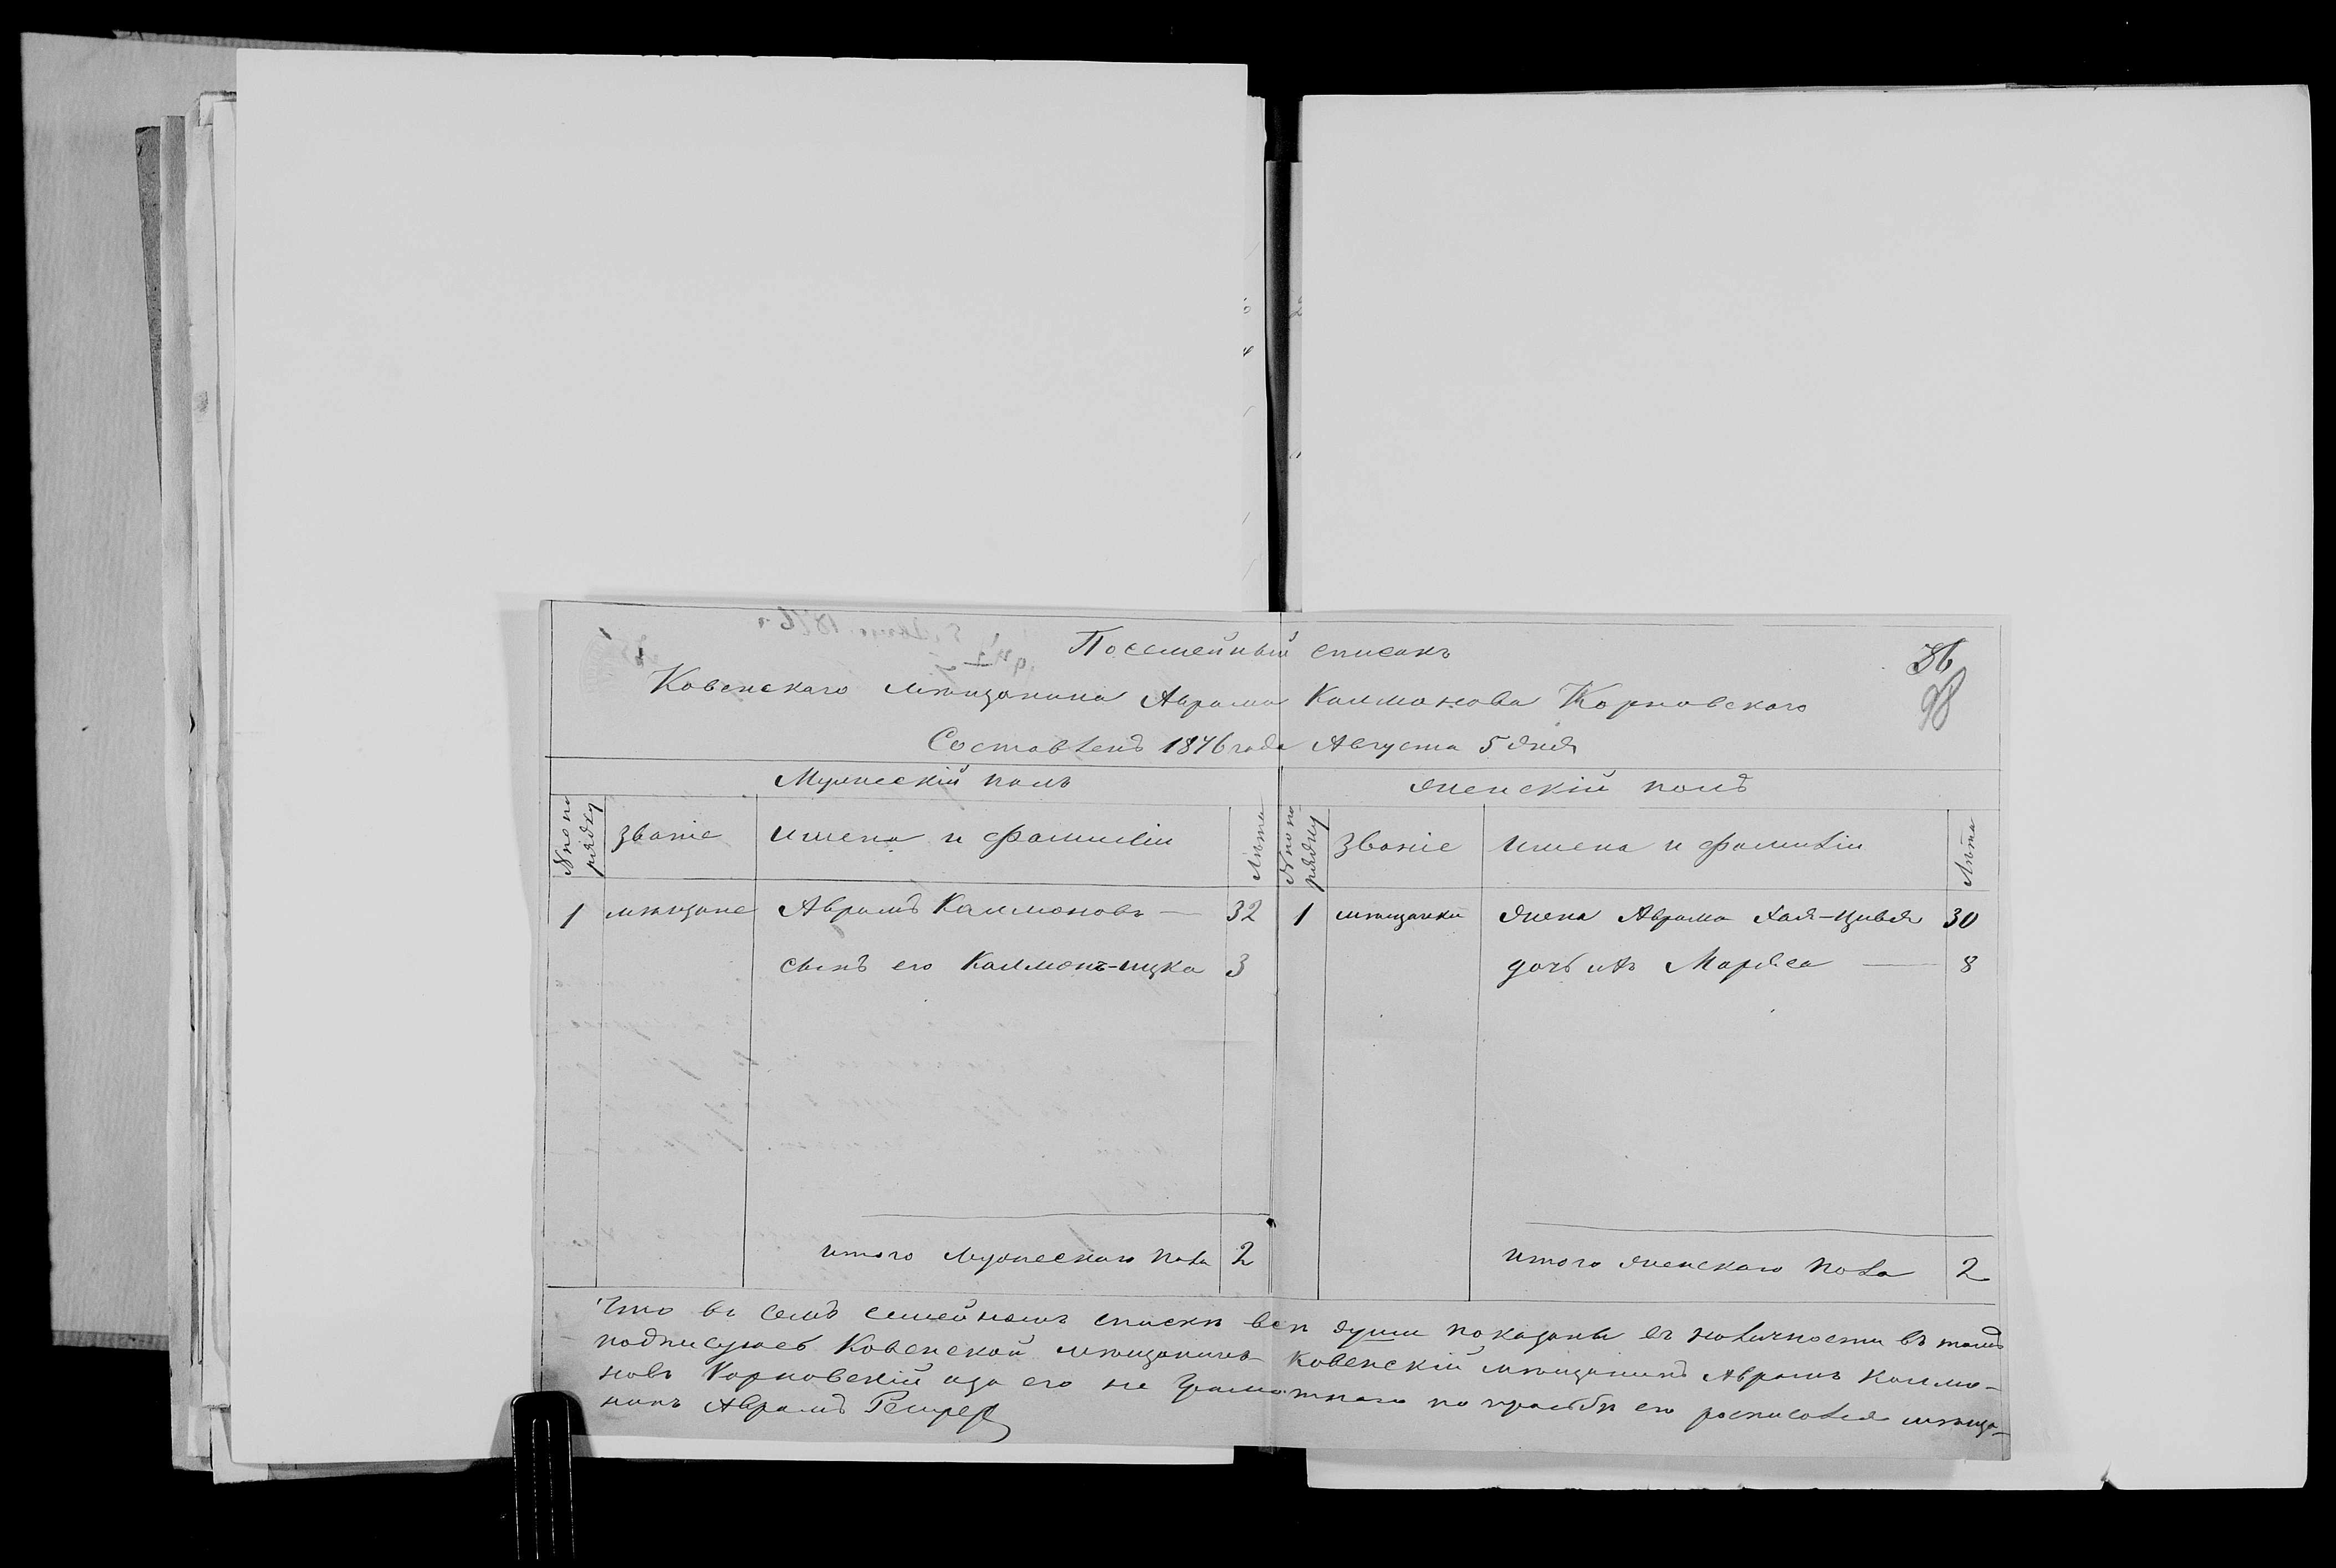 Посемейный списокъ
36
98
Ковенскаго мѣщанина Аврама Калманова Карновскаго
Составленъ 1876 года Августа 5 дня
Мужескій полъ
Женскій полъ
№ по порядку
званіе
имена и фамиліи
Лѣта
№ по порядку
званіе
имена и фамиліи
Лѣта
1 мѣщане Аврамъ Калмановъ — 32
1 мѣщанки жена Аврама Хая-Цивья 30
сынъ его Калманъ-ицка 3
дочь ихъ Маряса — 8
итого мужескаго пола 2
итого женскаго пола 2
Что въ семъ семейномъ списки всѣ души показаны въ наличности въ томъ
подписуюсь Ковенской мѣщанинъ Ковенскій мѣщанинъ Аврамъ Калма-
новъ Карновскій а за его не грамотнаго по прозбѣ его росписался мѣща-
нинъ Аврамъ